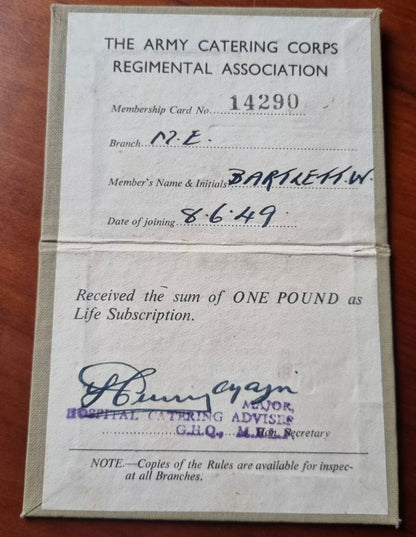 THE ARMY CATERING CORPS
REGIMENTAL ASSOCIATION
Membership Card No. 14290
Branch M.E.
Member's Name & Initials BARTLETT. W.
Date of joining 8.6.49
Received the sum of ONE POUND as
Life Subscription.
MAJOR,
HOSPITAL CATERING ADVISER
G.H.Q., M.E.L.F. Hon. Secretary
NOTE.—Copies of the Rules are available for inspec-
at all Branches.